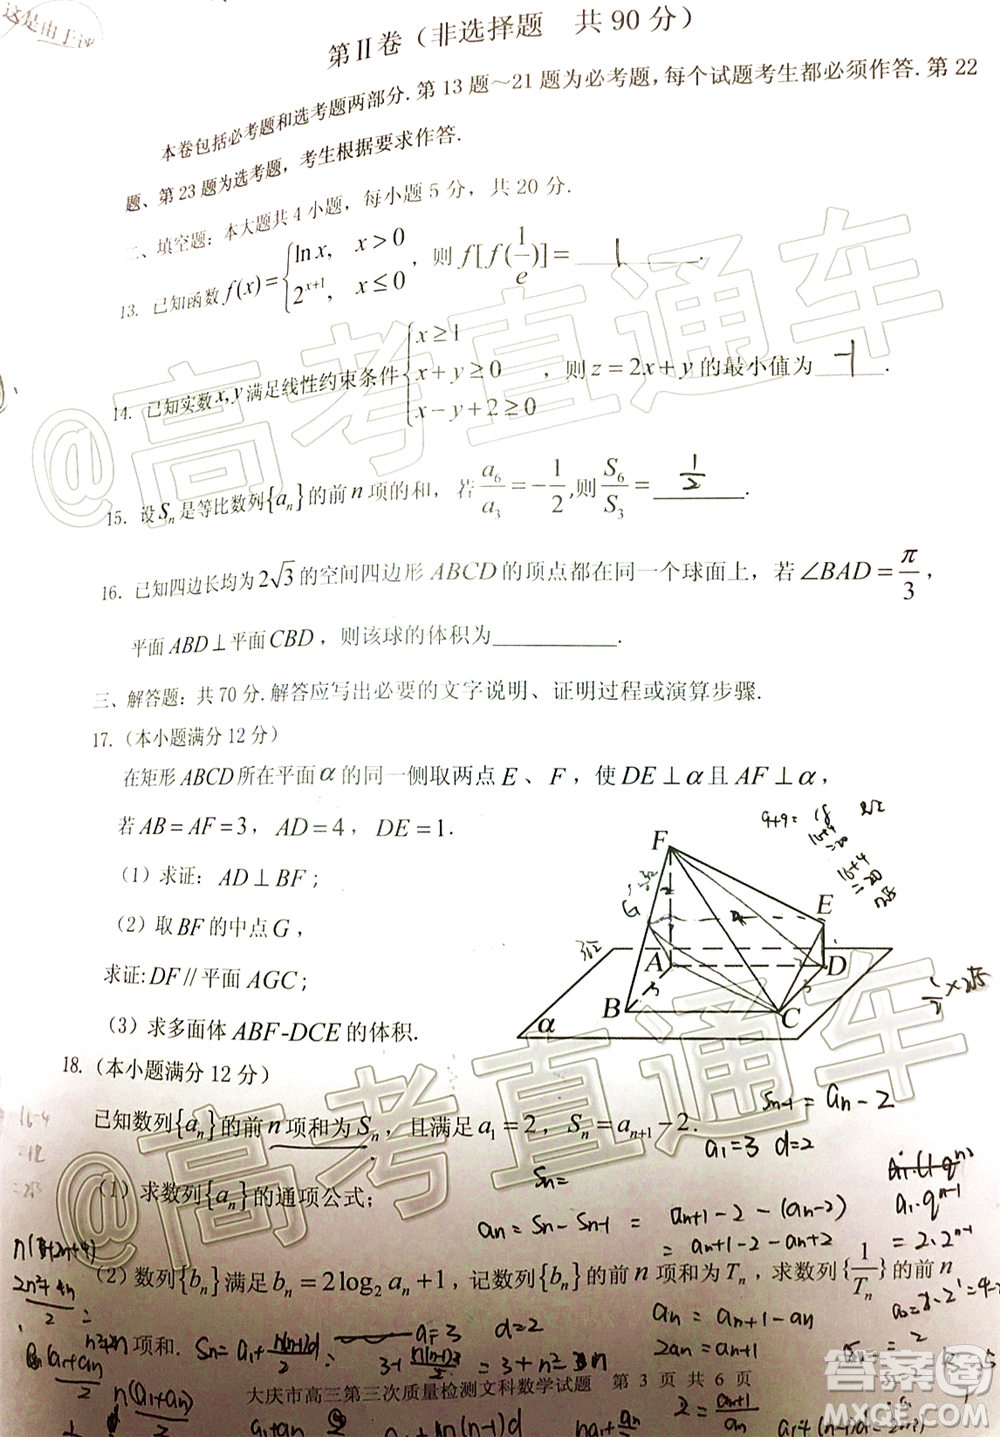 这是由于评
第Ⅱ卷（非选择题 共90分）
本卷包括必考题和选考题两部分.第13题～21题为必考题,每个试题考生都必须作答.第22
题、第23题为选考题,考生根据要求作答.
二、填空题：本大题共4小题，每小题5分，共20分.
13. 已知函数 f(x)={ln x, x>0; 2^{x+1}, x≤0，则 f[f(1/e)]= 1 .
14. 已知实数 x,y 满足线性约束条件{x≥1; x+y≥0; x-y+2≥0，则 z=2x+y 的最小值为 -1 .
15. 设 S_n 是等比数列{a_n}的前 n 项的和，若 a_6/a_3=-1/2,则 S_6/S_3= 1/2 .
16. 已知四边长均为2√3的空间四边形 ABCD 的顶点都在同一个球面上，若∠BAD=π/3，
平面 ABD⊥平面 CBD，则该球的体积为________.
三、解答题：共70分.解答应写出必要的文字说明、证明过程或演算步骤.
17.（本小题满分12分）
在矩形 ABCD 所在平面 α 的同一侧取两点 E、F，使 DE⊥α 且 AF⊥α，
若 AB=AF=3，AD=4，DE=1.
（1）求证：AD⊥BF；
（2）取 BF 的中点 G，
求证:DF//平面 AGC；
（3）求多面体 ABF-DCE 的体积.
9+9=18
F
E
G
A
D
B
C
α
18.（本小题满分12分）
已知数列{a_n}的前 n 项和为 S_n，且满足 a_1=2，S_n=a_{n+1}-2.
S_{n-1}=a_n-2
a_1=3 d=2
（1）求数列{a_n}的通项公式；
S_n=
a_n=S_n-S_{n-1}=a_{n+1}-2-(a_n-2)
=a_{n+1}-2-a_n+2
a_1·q^{n-1}
=2·2^{n-1}
（2）数列{b_n}满足 b_n=2log_2 a_n+1，记数列{b_n}的前 n 项和为 T_n，求数列{1/T_n}的前 n
项和.
a_n=a_{n+1}-a_n
2a_n=a_{n+1}
2=a_{n+1}/a_n
a_1=3 d=2
大庆市高三第三次质量检测文科数学试题 第 3 页 共 6 页
@高考直通车
@高考直通车
答案圈
MXQE.COM